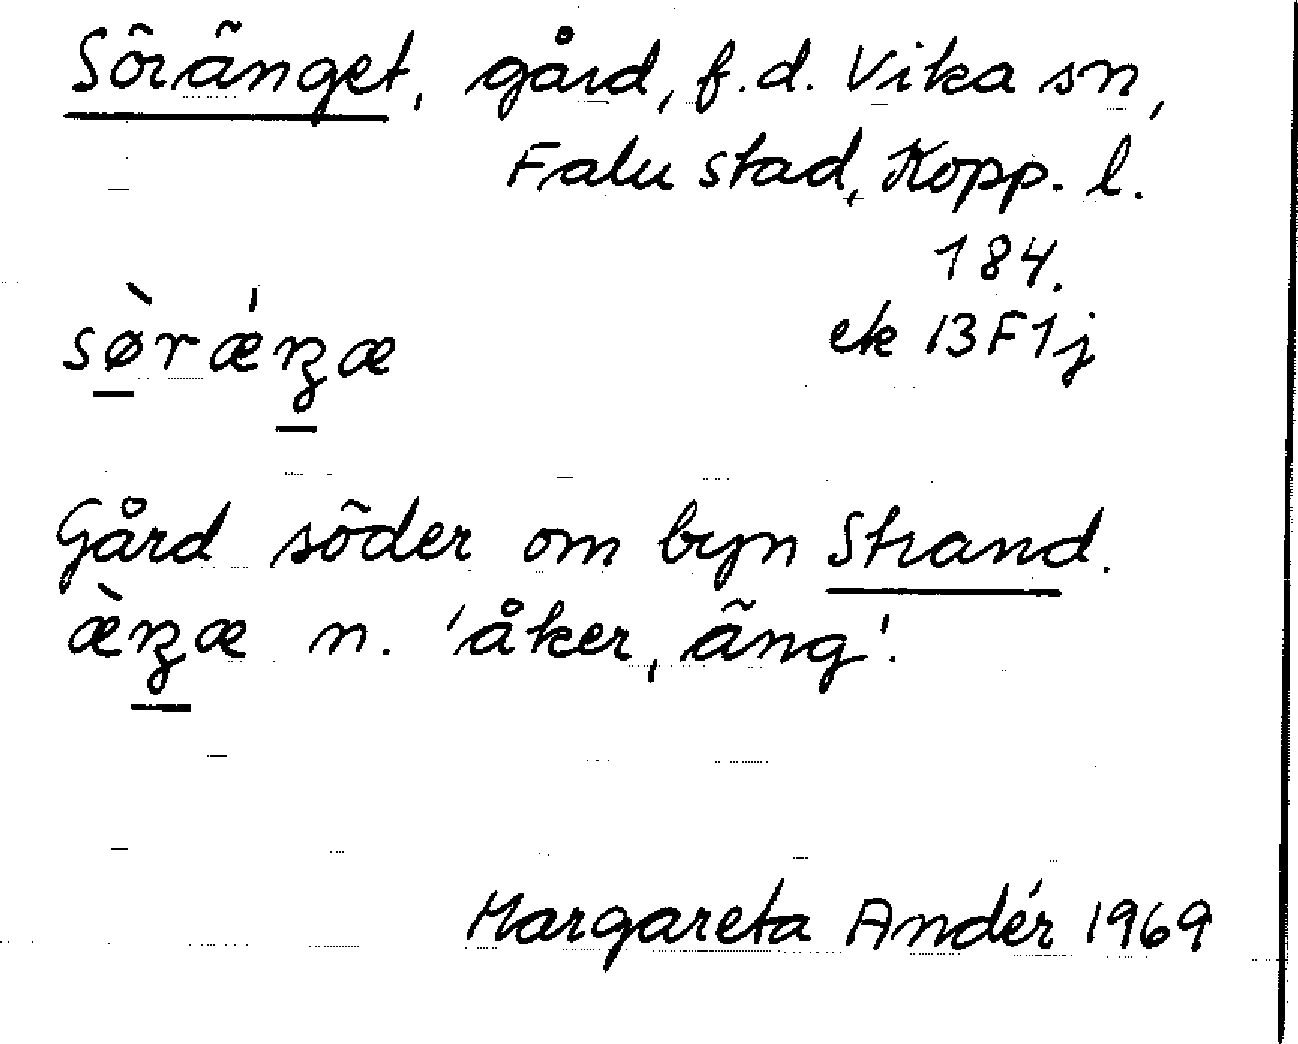 Söränget, gård, f.d. Vika sn,
Falu stad, Kopp. l.
184.
sø̀rǽŋæ ek 13F1j
Gård söder om byn Strand.
æ̀ŋæ n. 'åker, äng'.
Margareta Andér 1969